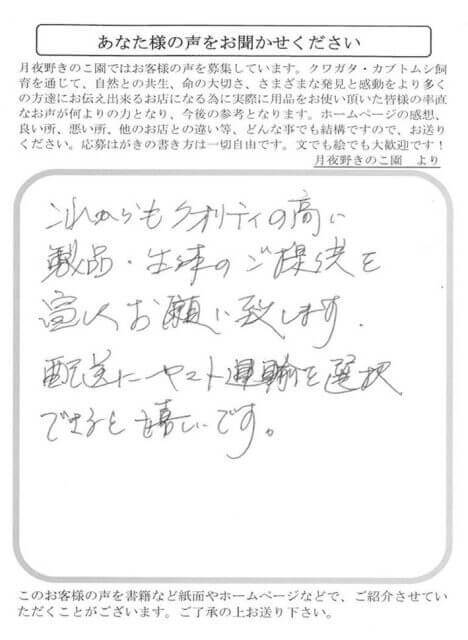 あなた様の声をお聞かせください
月夜野きのこ園ではお客様の声を募集しています。クワガタ・カブトムシ飼
育を通じて、自然との共生、命の大切さ、さまざまな発見と感動をより多く
の方達にお伝え出来るお店になる為に実際に用品をお使い頂いた皆様の率直
なお声が何よりの力となり、今後の参考となります。ホームページの感想、
良い所、悪い所、他のお店との違い等、どんな事でも結構ですので、お送り
ください。応募はがきの書き方は一切自由です。文でも絵でも大歓迎です！
月夜野きのこ園　より
これからもクオリティの高い
製品・生体のご提供を
宜しくお願い致します.
配送にヤマト運輸を選択
できると嬉しいです。
このお客様の声を書籍など紙面やホームページなどで、ご紹介させてい
ただくことがございます。ご了承の上お送り下さい。